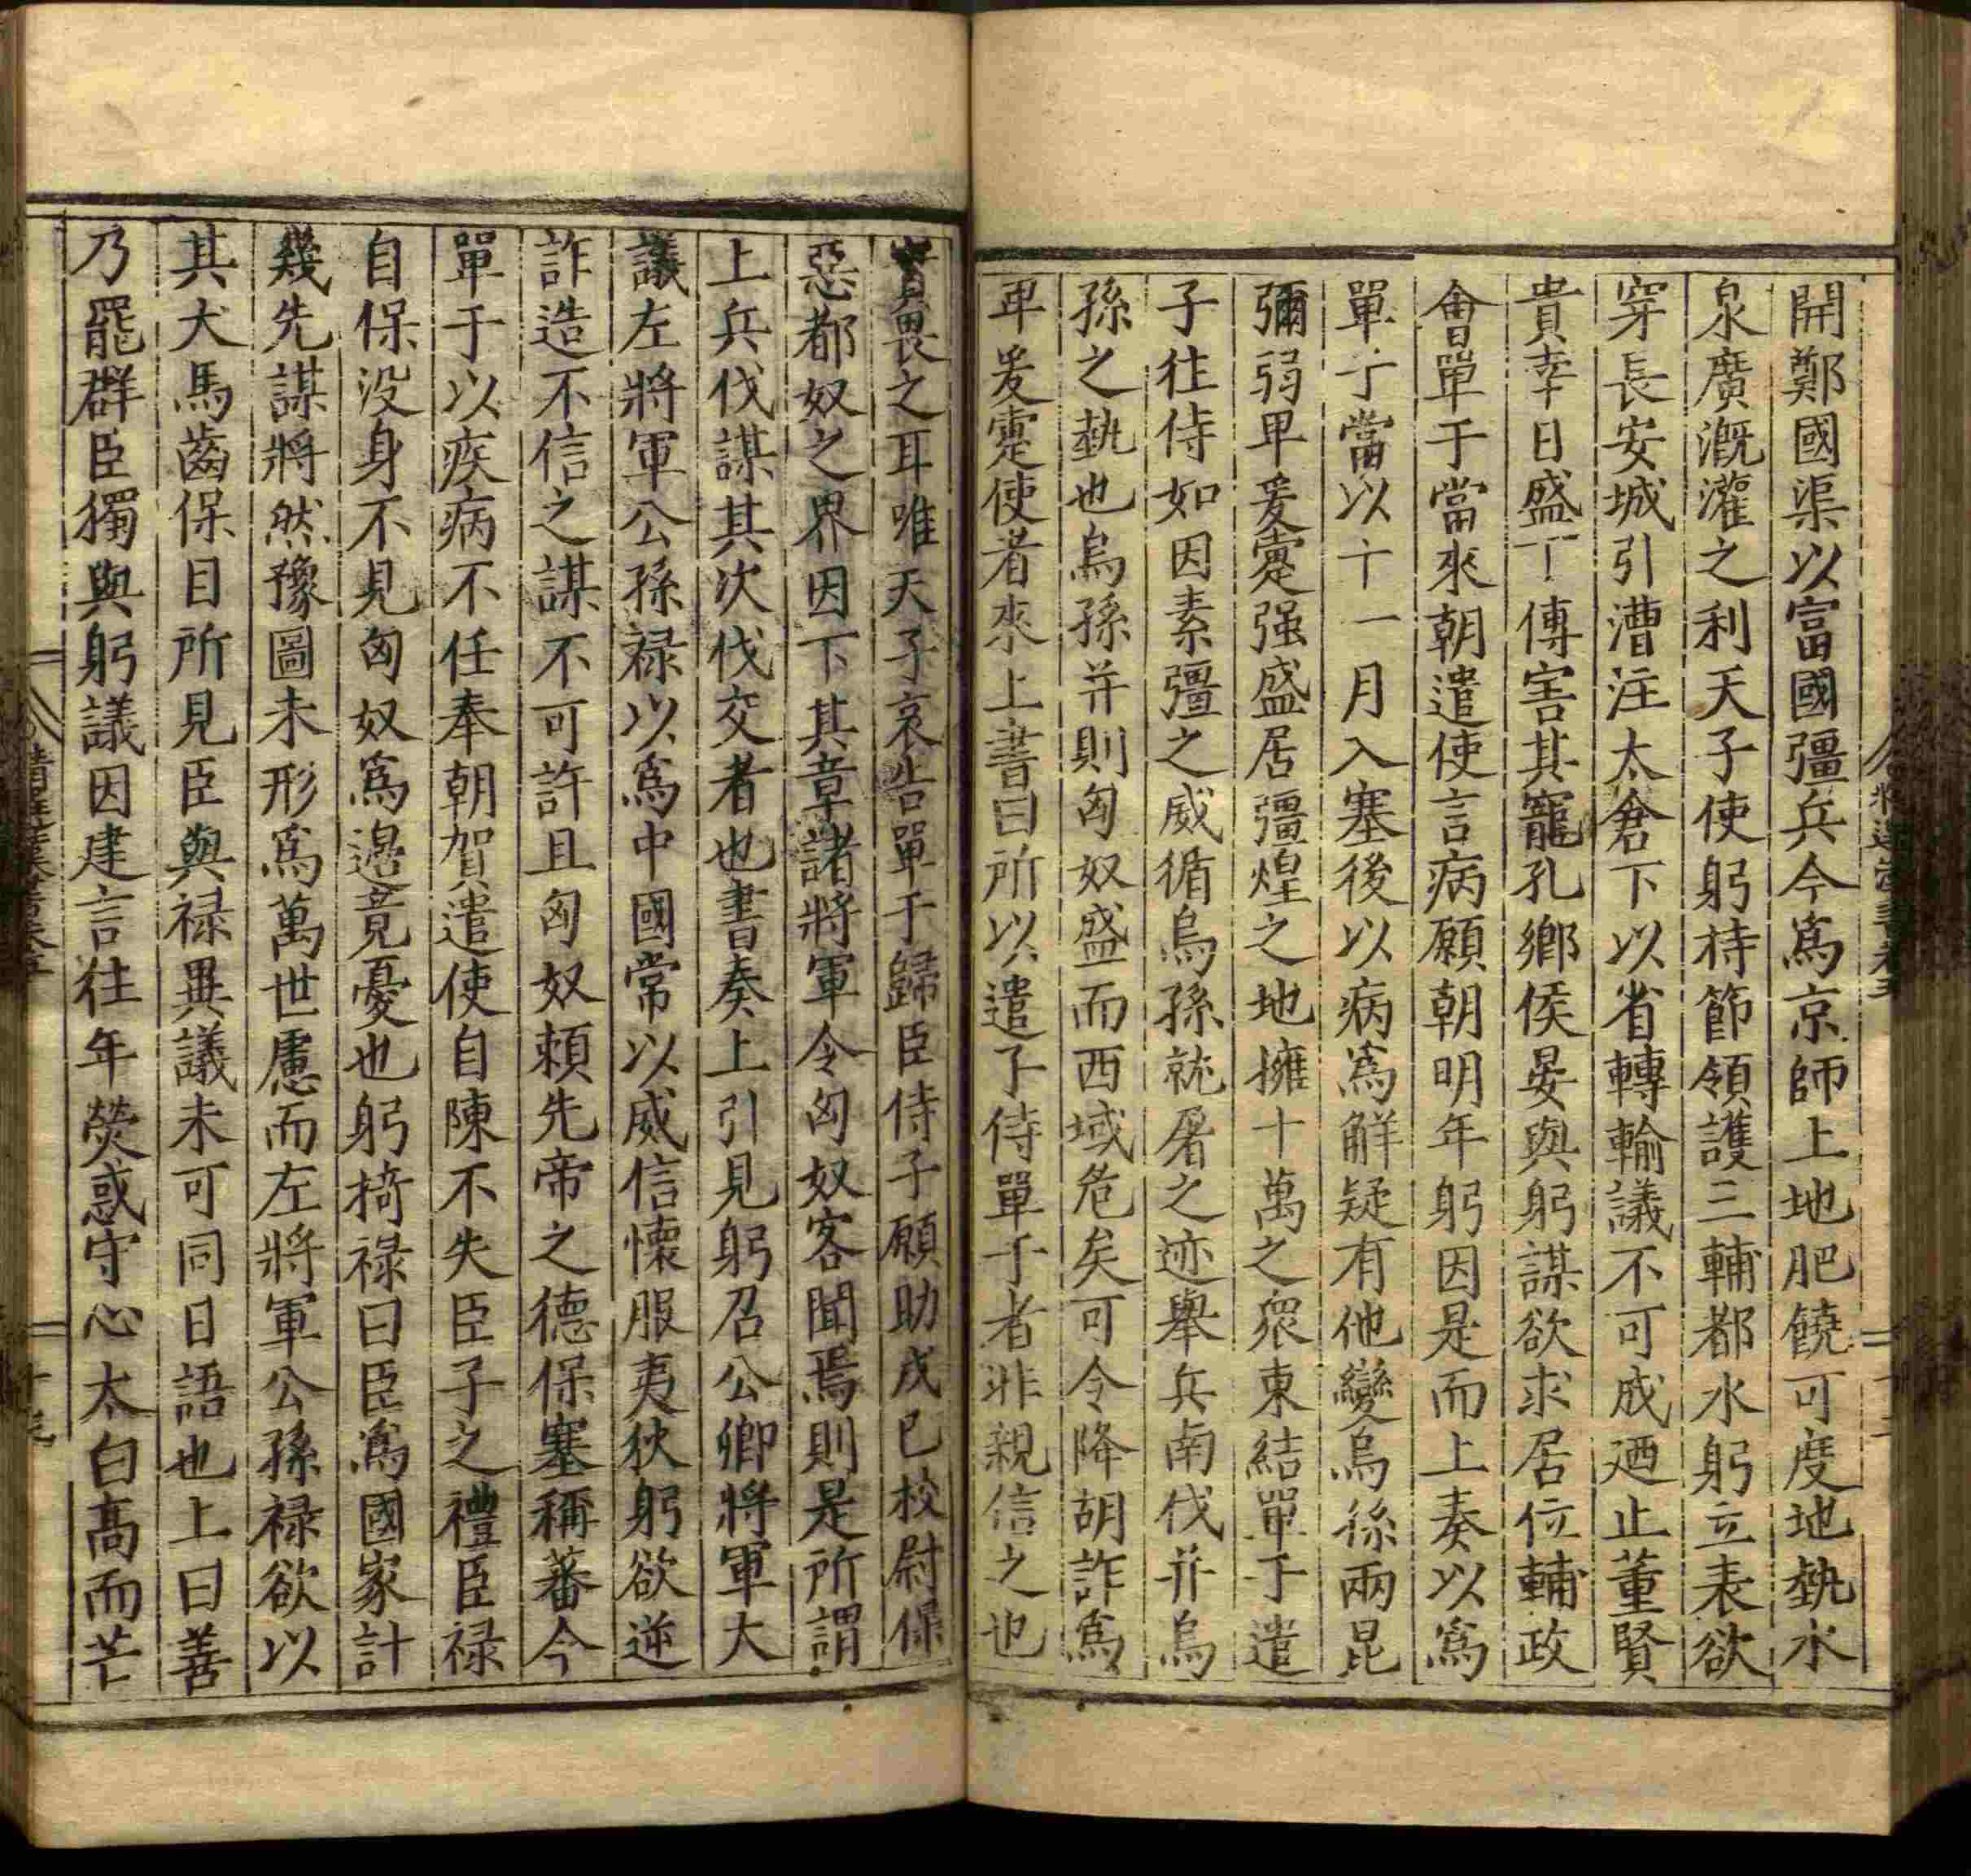 開鄭國渠以富國彊兵今爲京師上地肥饒可度地埶水
泉廣溉灌之利天子使躬持節領護三輔都水躬立表欲
穿長安城引漕注太倉下以省轉輸議不可成迺止董賢
貴幸日盛丁傅害其寵孔鄉侯晏與躬謀欲求居位輔政
會單于當來朝遣使言病願朝明年躬因是而上奏以爲
單于當以十一月入塞後以病爲解疑有他變烏孫兩昆
彌弱卑爰疐强盛居彊煌之地擁十萬之衆東結單于遣
子往侍如因素彊之威循烏孫就屠之迹舉兵南伐并烏
孫之埶也烏孫并則匈奴盛而西域危矣可令降胡詐爲
卑爰疐使者來上書曰所以遣子侍單于者非親信之也
實畏之耳唯天子哀告單于歸臣侍子願助戊已校尉保
惡都奴之界因下其章諸將軍令匈奴客聞焉則是所謂
上兵伐謀其次伐交者也書奏上引見躬召公卿將軍大
議左將軍公孫禄以爲中國常以威信懷服夷狄躬欲逆
詐造不信之謀不可許且匈奴賴先帝之德保塞稱蕃今
單于以疾病不任奉朝賀遣使自陳不失臣子之禮臣禄
自保没身不見匈奴爲邉竟憂也躬掎禄曰臣爲國家計
幾先謀將然豫圖未形爲萬世慮而左將軍公孫禄欲以
其犬馬齒保目所見臣與禄異議未可同日語也上曰善
乃罷群臣獨與躬議因建言往年熒惑守心太白髙而芒